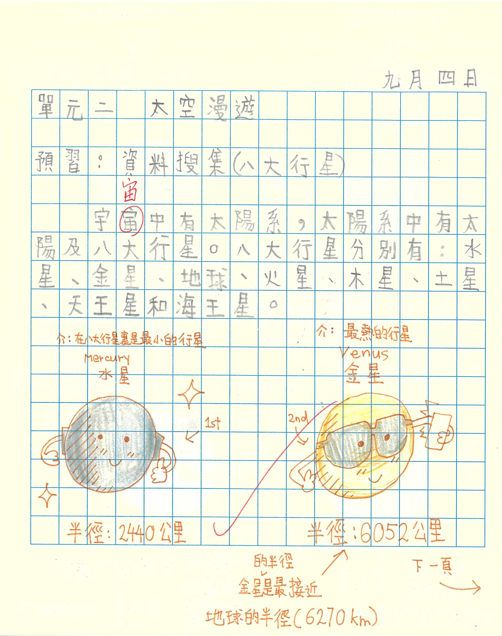 九月四日
單元二 太空漫遊
預習：資料搜集(八大行星)
宙
宇宙中有太陽系，太陽系中有太
陽及八大行星。八大行星分別有：水
星、金星、地球、火星、木星、土星
、天王星和海王星。
介：在八大行星裏是最小的行星
Mercury
水星
1st
半徑：2440公里
介：最熱的行星
Venus
金星
2nd
半徑：6052公里
的半徑
金星是最接近
地球的半徑(6270km)
下一頁